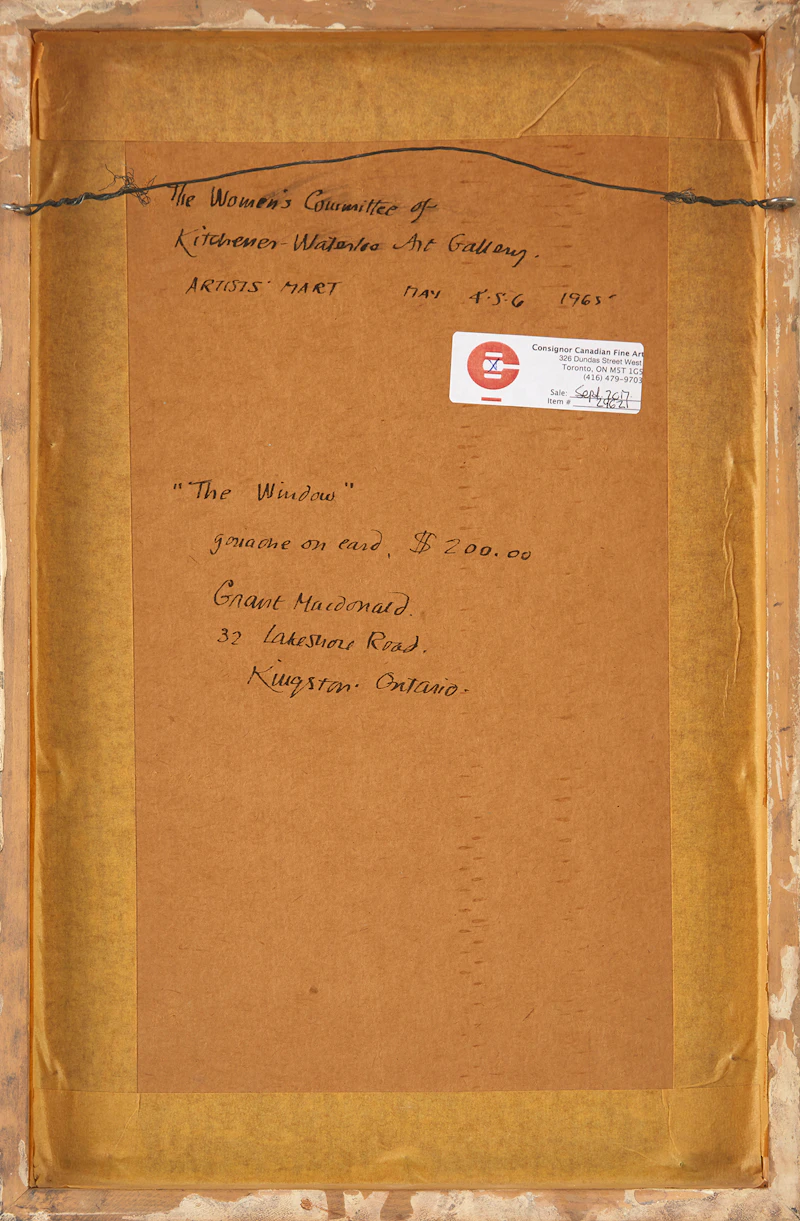 The Women's Committee of
Kitchener-Waterloo Art Gallery.
ARTISTS' MART MAY 4·5·6 1965
Consignor Canadian Fine Art
326 Dundas Street West
Toronto, ON M5T 1G5
(416) 479-9703
Sale: Sept 2017
Item #
"The Window"
gouache on card, $200.00
Grant Macdonald.
32 Lakeshore Road.
Kingston. Ontario.